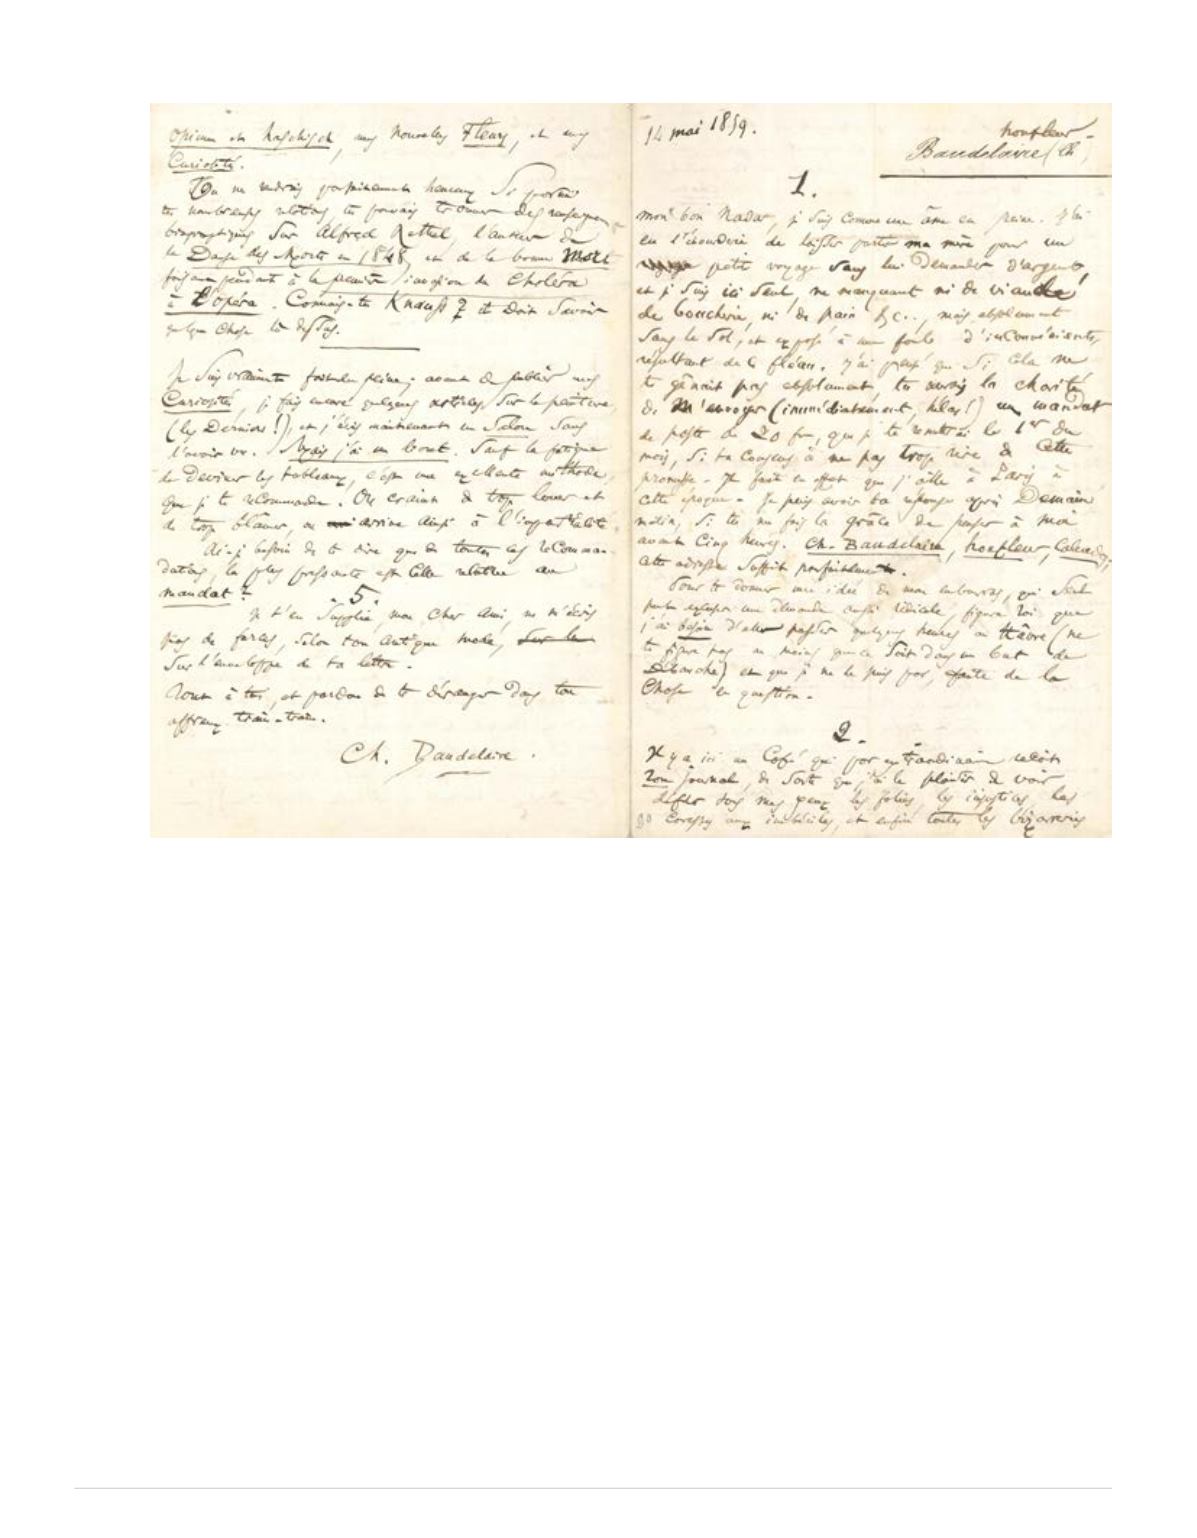 opium et haschisch, mes nouvelles Fleurs, et mes
Curiosités.
Tu me rendrais parfaitement heureux si parmi
tes nombreuses relations, tu pouvais trouver des renseignements
biographiques sur Alfred Rethel, l'auteur de
la Danse des Morts en 1848, et de la bonne Mort
faisant pendant à la première invasion du Choléra
à l'opéra. Connais-tu Knauss ? il doit savoir
quelque chose là dessus.
Je suis vraiment fort en peine ; avant de publier mes
Curiosités, je fais encore quelques articles sur la peinture,
(les Derniers !), et j'écris maintenant un Salon sans
l'avoir vu. Mais j'ai un livret. Sauf la fatigue
de deviner les tableaux, c'est une excellente méthode,
que je te recommande. On craint de trop louer et
de trop blâmer, on arrive ainsi à l'impartialité.
Ai-je besoin de te dire que de toutes ces recomman-
dations, la plus pressante est celle relative au
mandat ?
5.
Je t'en supplie, mon cher ami, ne m'écris
pas de farces, selon ton antique mode, sur le
sur l'enveloppe de ta lettre.
Tout à toi, et pardon de te déranger dans ton
affreux train-train.
Ch. Baudelaire.
14 mai 1859.
honfleur -
Baudelaire (Ch)
1.
mon bon Nadar, je suis comme une âme en peine. J'ai
eu l'étourderie de laisser partir ma mère pour un
petit voyage sans lui demander d'argent,
et je suis ici seul, ne manquant ni de viande
de boucherie, ni de pain &c.., mais absolument
sans le sol, et exposé à une foule d'inconvénients,
résultant de ce fléau. J'ai pensé que si cela ne
te gênait pas absolument, tu aurais la charité
de m'envoyer (immédiatement, hélas !) un mandat
de poste de 20 fr, que je te remettrai le 1er du
mois, si tu consens à ne pas trop rire de cette
promesse - Il faut en effet que j'aille à Paris à
cette époque - Je puis avoir ta réponse après Demain
matin, si tu me fais la grâce de penser à moi
avant Cinq heures. Ch. Baudelaire, honfleur, Calvados,
cette adresse suffit parfaitement.
Pour te donner une idée de mon embarras, qui seul
peut excuser une demande aussi ridicule, figure toi que
j'ai besoin d'aller passer quelques heures au Hâvre (ne
te figure pas au moins que ce soit dans un but de
Débauche) et que je ne le puis pas, faute de la
Chose en question -
2.
Il y a ici un Café qui par extraordinaire reçoit
ton journal, de sorte que j'ai le plaisir de voir
défiler sous mes yeux les folies, les injustices, les
80
caresses aux imbéciles, et enfin toutes les bizarreries